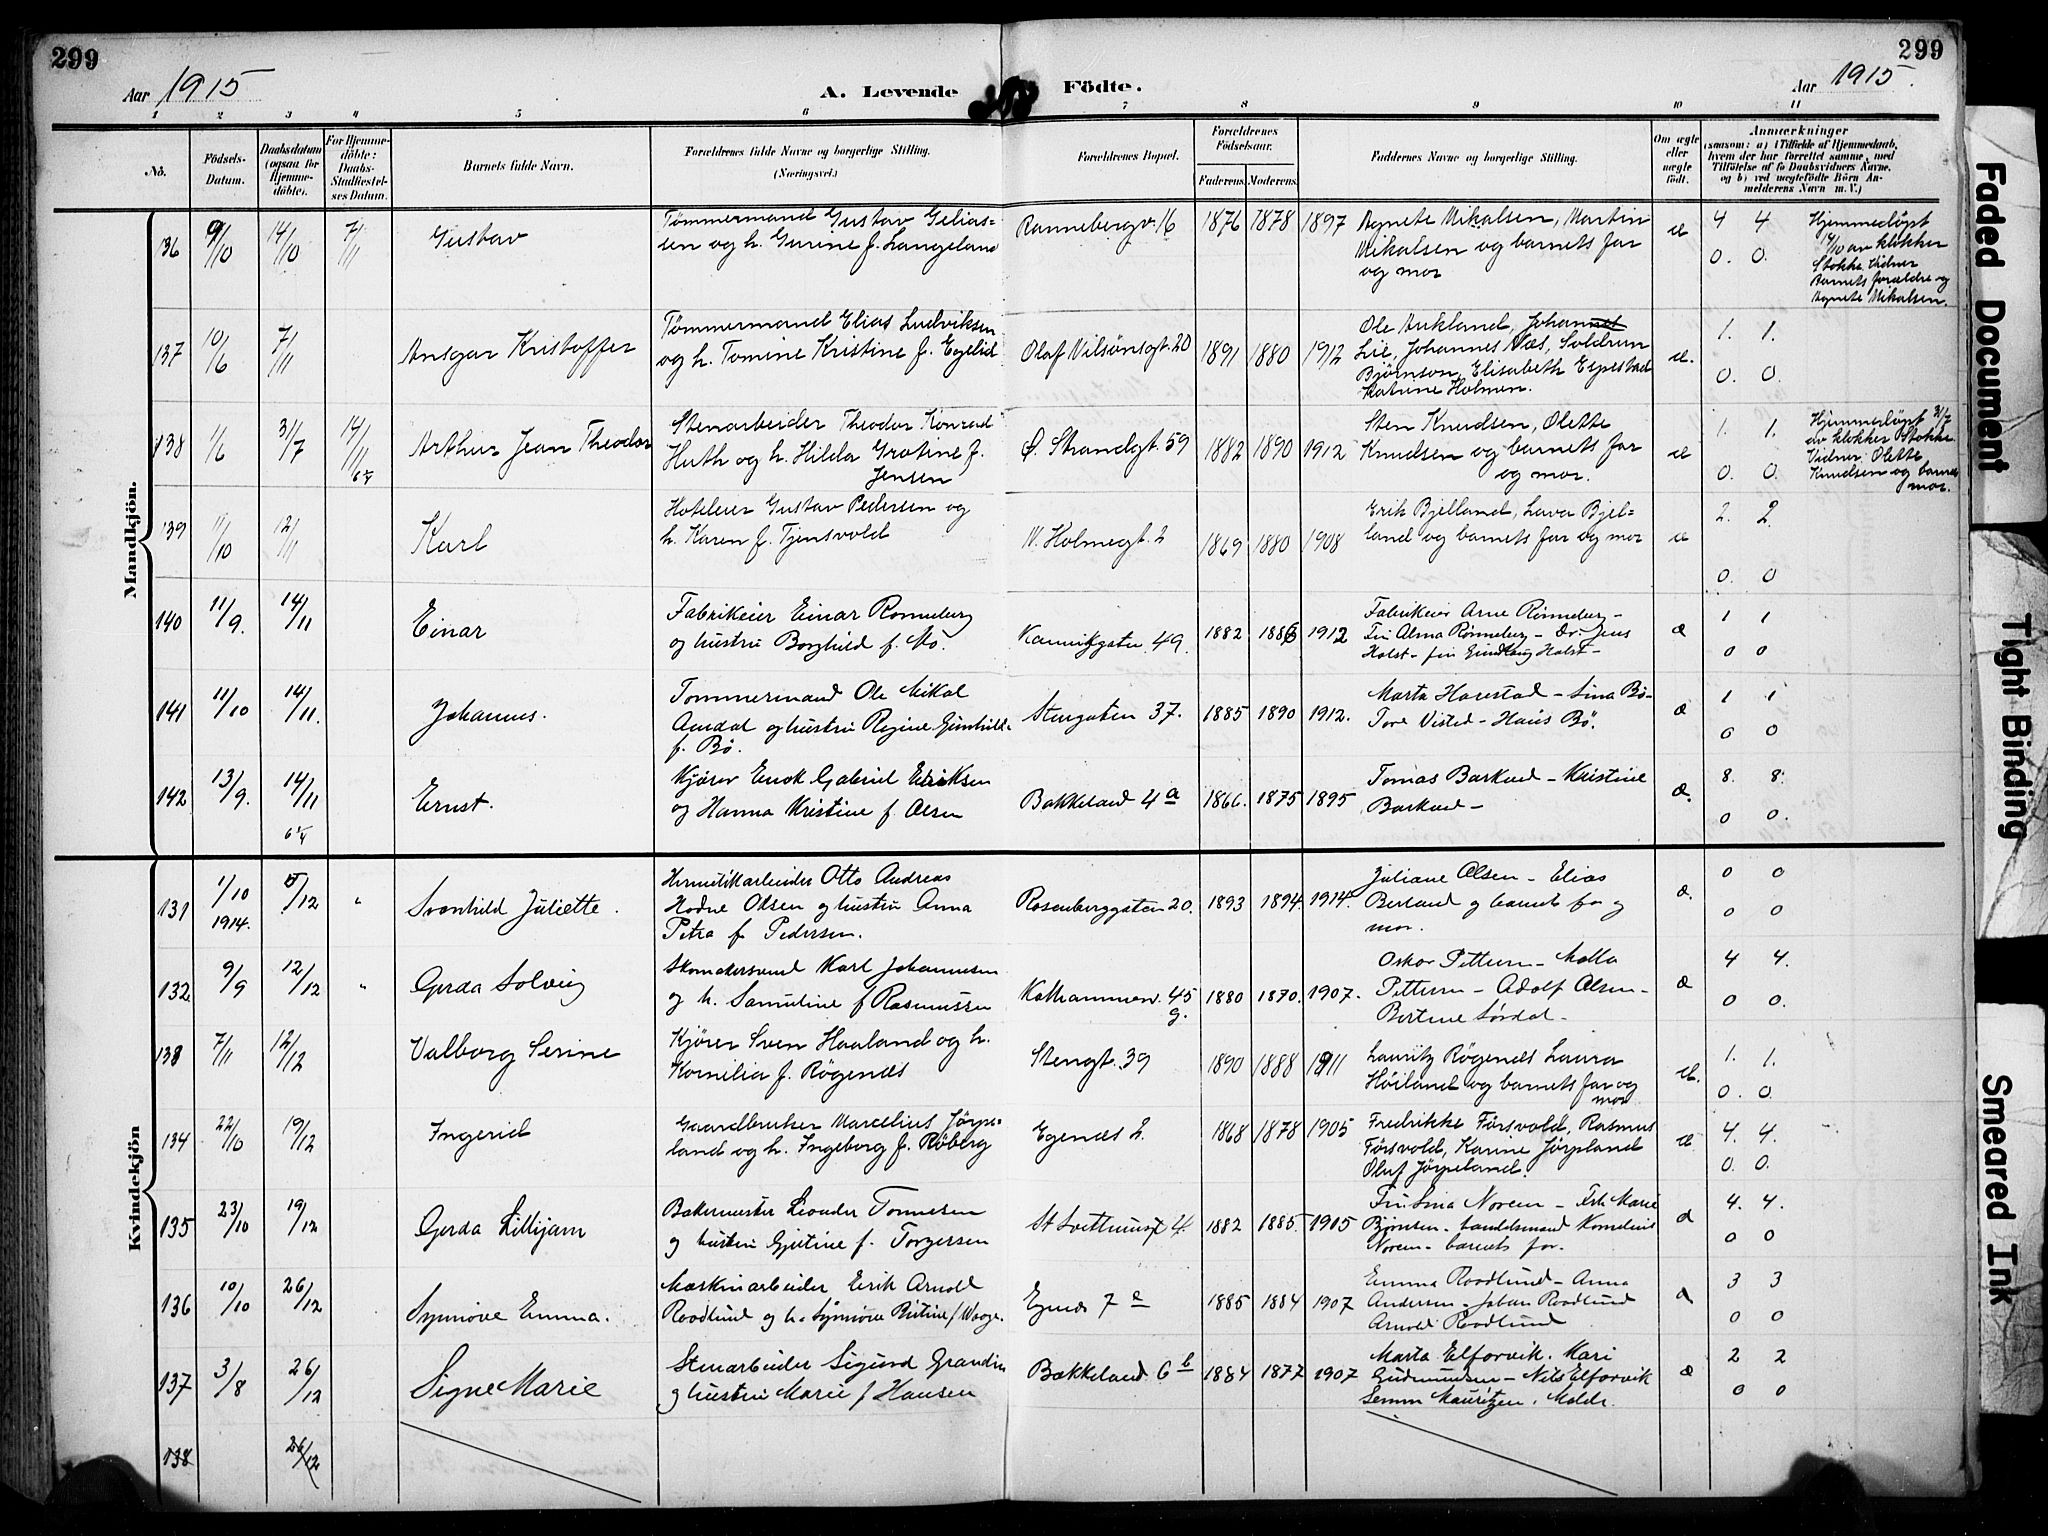 299
299
Aar 1915
A. Levende Födte.
Aar 1915.
1 2 3 4 5 6 7 8 9 10 11
No.
Födsels-
Datum.
Daabsdatum
(ogsaa for
Hjemme-
döbte).
For Hjemme-
döbte:
Daabs-
Stadfæstel-
ses Datum.
Barnets fulde Navn.
Forældrenes fulde Navne og borgerlige Stilling.
(Næringsvei.)
Forældrenes Bopæl.
Forældrenes
Födselsaar.
Faderens. Moderens.
Faddernes Navne og borgerlige Stilling.
Om ægte
eller
uægte
födt.
Anmærkninger
(saasom: a) i Tilfælde af Hjemmedaab,
hvem der har forrettet samme, med
Tilföielse af to Daabsvidners Navne,
og b) ved uægtefödte Börn An-
melderens Navn m. V.)
Mandkjön.
136 9/10 14/10 7/11 Gustav
Tømmermand Gustav Gelias=
sen og h. Gurine f. Langeland
Rannebergv. 16 1876 1878 1897
Agnete Mikalsen, Martin
Mikalsen og barnets far
og mor
æ 4 4
0. 0.
Hjemmedøpt
14/10 av klokker
Stokke. Vidner
Barnets forældre og
Agnete Mikalsen.
137 10/6 7/11 Ansgar Kristoffer
Tømmermand Elias Ludviksen
og h. Tomine Kristine f. Egelid
Olaf Nilsönsgt. 20 1891 1880 1912
Ole Aukland, Johannes
Lie, Johannes Næs, Soldrun
Bjørnson, Elisabeth Espestad
Katrine Holmen.
æ. 1. 1.
0. 0.
138 1/6 31/7 14/11 Arthur Jean Theodor
6 V
Stenarbeider Theodor Konrad
Huth og h. Hilda Grotine f.
Jensen
Ø. Strandgt. 59 1882 1890 1912
Sten Knudsen, Olette
Knudsen og barnets far
og mor.
æ 1. 1.
0. 0.
Hjemmedøpt 31/7
av klokker Stokke
Vidner. Olette
Knudsen og barnets
mor.
139 11/10 12/11 Karl
Hoteleier Gustav Pedersen og
h. Karen f. Tjensvold
N. Holmegt. 2 1869 1880 1908
Erik Bjelland, Lava Bjel=
land og barnets far og mor
æ 2. 2.
0. 0
140 11/9. 14/11 Einar
Fabrikeier Einar Ronneberg
og hustru Borghild f. Mö.
Kannikgaten 49. 1882 1886 1912
Fabrikeier Arne Rønneberg -
Fru Alma Rønneberg - Dr. Jens
Holst - fru Holst -
æ 1 1
0 0
141 11/10 14/11. Johannes.
Tommermand Ole Mikal
Aredal og hustru Regine Gunhild
f. Bö.
Stengaten 37. 1885 1890 1912.
Marta Harestad - Sina Bö -
Tore Visted - Hans Bö.
æ 1 1
0 0
142 13/9. 14/11 Ernst.
6 V
Kjører Enok Gabriel Eriksen
og Hanna Kristine f. Olsen
Bakkeland 4 a 1866. 1875 1895
Tomas Barkved - Kristine
Barkved -
æ. 8. 8.
0 0.
Kvindekjön
131 1/10 5/12 " Svanhild Juliette.
1914.
Hermetikarbeider Otto Andreas
Hodne Olsen og hustru Anna
Petra f. Pedersen.
Rosenberggaten 20. 1893 1894. 1914.
Juliane Olsen - Elias
Berland og barnets far og
mor.
æ. 0 0
0 0
132 9/9 12/12 " Gerda Solveig
Skomakersvend Karl Johannesen
og h. Samuline f Rasmussen
Kathammerv. 45 g. 1880 1870. 1907.
Oskar Pettersen - Malla
Pettersen - Adolf Olsen -
Bertine Sørdal -
æ 4 4.
0 0.
138 7/11 12/12 Valborg Serine
Kjører Sven Haaland og h.
Kornelia f. Røgenes
Stengt. 39 1890 1888 1911
Lauritz Røgenes Laura
Høiland og barnets far og
mor
æ. 1. 1.
0. 0.
134 22/10 19/12 Ingerid
Gaardbruker Marcelius Jørpe=
land og h. Ingeborg f. Røberg
Egenes 2. 1868 1878 1905
Fredrikke Førsvold, Rasmus
Førsvold, Karine Jørpland
Oluf Jørpeland.
æ 4. 4.
0. 0.
135 23/10 19/12 Gerda Lillijam
Bakermester Leonder Tonnesen
og hustru Gjertine f. Torgersen
1882 1885. 1905
Fru Sina Norem - Frk Marie
Bjørnsen - handelsmand Kornelius
Norem - barnets far.
4. 4.
0 0
136 10/10 26/12 Synnöve Emma.
Maskinarbeider Erik Arnold
Roodlund og h. Synnöve Britine f Waage.
Egenes 7 e 1885 1884 1907
Emma Roodlund - Anna
Andersen - Johan Roodlund
Arnold Roodlund
3 3
0 0
137 3/8 26/12 Signe Marie
Stenarbeider Sigurd Grandin
og hustru Marie f Hansen
Bakkeland 6 b 1884 1877 1907
Marta Elforvik. Mari
Gudmundsen - Nils Elforvik
Mauritzen. Molde.
æ 2 2
0 0
138 26/12
Faded Document
Tight Binding
Smeared Ink